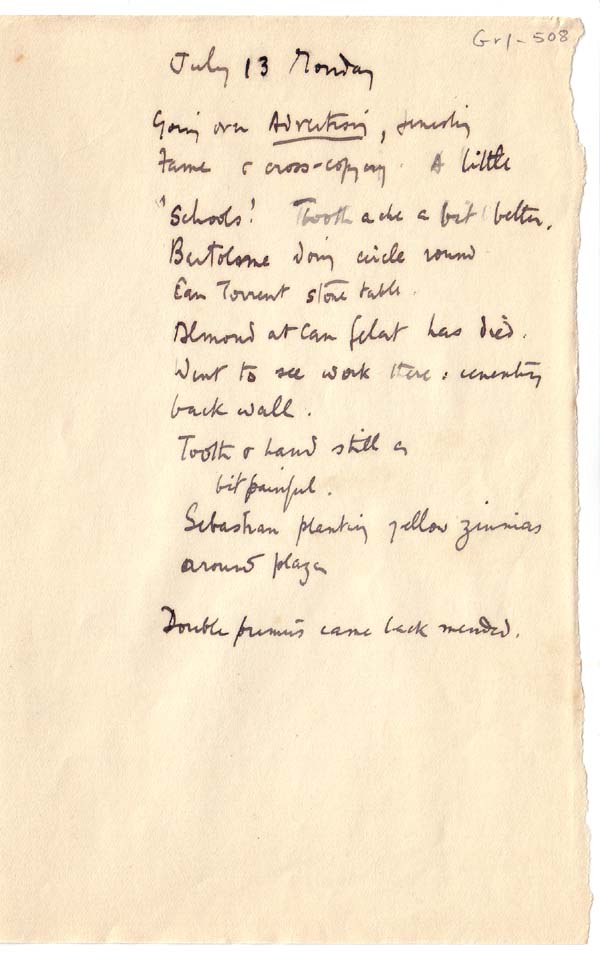 Grf-508
July 13 Monday
Going over Advertising,
Fame & cross-copying. A little
'Schools'. Tooth ache a bit better.
Bartolome doing circle round
Can Torrent stone table.
Almond at Can Gelat has died.
Went to see work there: cementing
back wall.
Tooth & hand still a
bit painful.
Sebastian planting yellow zinnias
around plaza
Double primus came back mended.